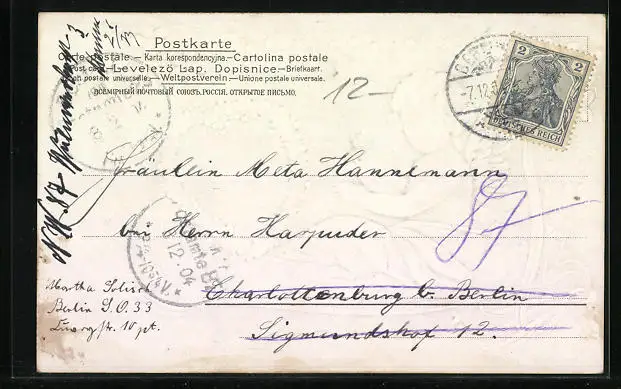 Postkarte
Carte postale.— Karta korespondencyjna.—Cartolina postale
Post card.—Levelező Lap. Dopisnice.—Briefkaart.
postale universelle.—Weltpostverein—Unione postale universale.
ВСЕМІРНЫЙ ПОЧТОВЫЙ СОЮЗЪ. РОССІЯ. ОТКРЫТОЕ ПИСЬМО.
12–
2 2
DEUTSCHES REICH
7.12.
N.W. 87
Fräulein Meta Hannemann
bei Herrn Harpuder
87
12 04
Charlottenburg b. Berlin
Sigmundshof 12.
Martha
Berlin S.O. 33
10 pt.